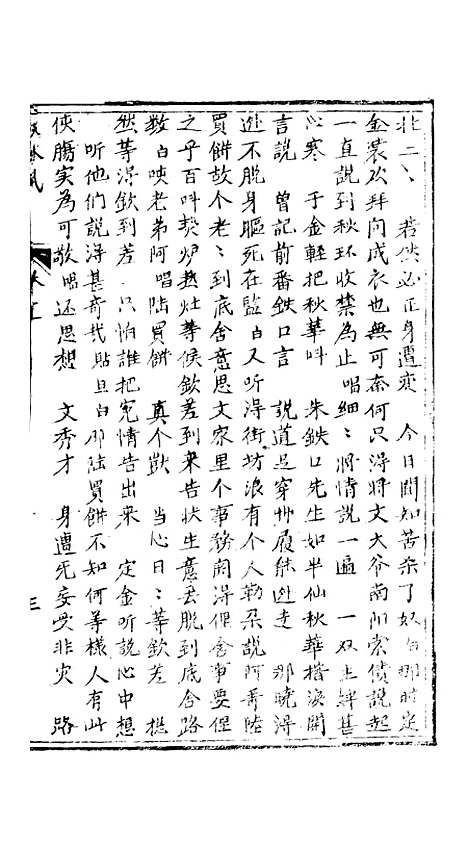 北二〻 若侠必正身遭变 今日闻知苦杀了奴白那时定
金裳欢拜问成衣也無可奈何只得将文大爷南阳索债說起
一直說到秋环收禁為止唱细〻将情說一遍 一双主婢甚
心寒 于金輕把秋華呌 朱鉄口先生如半仙秋華揩淚闻
言說 曾記前番鉄口言 說道足穿草履能逃走 那曉得
逃不脱身軀死在監白又听得街坊浪有个人勒朶說阿膏陸
買餅故个老〻到底舍意思文家里个事務闹得俚舍事要俚
之乎百呌契炉熱灶等候欽差到来告状生意丢脱到底舍路
数白唉老弟阿唱陆買餅 真个獃 当心日〻等欽差 縱
然等得欽到差 只怕誰把冤情告出来 定金听說心中想
听他们說得甚奇哉貼旦白那陆買餅不知何等樣人有此
侠腸实為可敬唱还思想 文秀才 身遭无妄受非灾 路
三